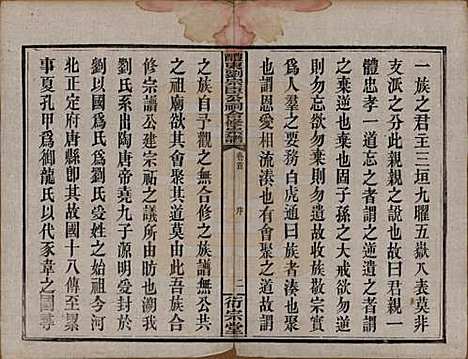 一族之君主三垣九曜五嶽八表莫非
支派之分此親親之說也故曰君親一
體忠孝一道兵之者謂之逆散之者謂
之棄逆也棄也固子孫之大戒欲勿逆
則勿散欲勿棄則勿兵故敬宗實
爲人羣之要務白虎通曰族者湊也聚
也謂恩愛相流湊也有會聚之道故謂
之族自予觀之無合修之族譜無公共
之祖廟欲其會聚其道莫由此吾族合
修宗譜公建宗祠之議所由昉也我
劉氏系出陶唐帝堯九子源明愛封于
劉以國爲氏爲劉氏受姓之始祖今河
北正定府唐縣卽其故國十八傳至累
事夏孔甲爲御龍氏以代豕韋之國尋
醴東劉宗臣公祠合修宗譜
卷首
序
二
衍宗堂